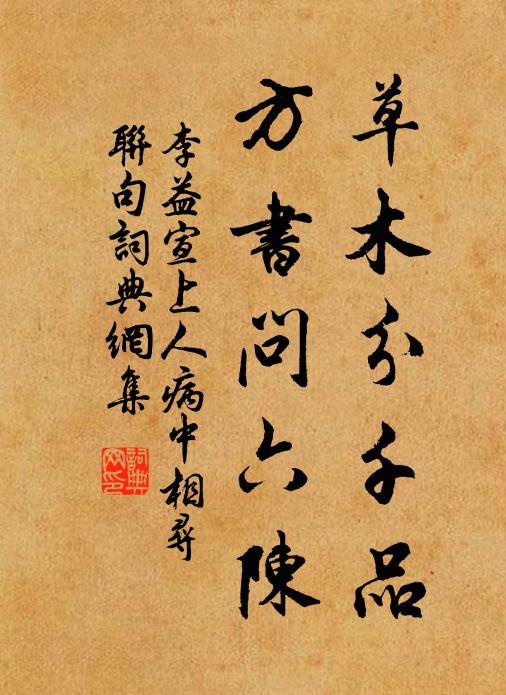 草木分千品
方書問六陳
李益宣上人病中相尋
聯句詞典網集
詞典
網印